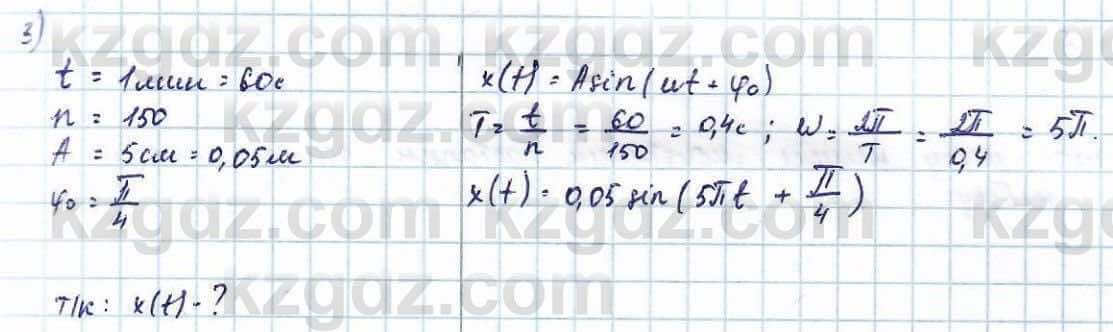 3)
t = 1мин = 60с
n = 150
A = 5см = 0,05м
φ₀ = π/4
Т/к: x(t) - ?
x(t) = A sin(ωt + φ₀)
T = t/n = 60/150 = 0,4с ; ω = 2π/T = 2π/0,4 = 5π.
x(t) = 0,05 sin(5πt + π/4)
kzgdz.com
kzgdz.com
kzgdz.com
kzgdz.com
kzgdz.com